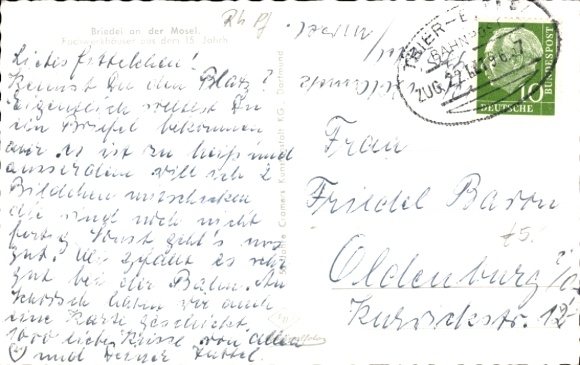 Briedel an der Mosel.
Fachwerkhäuser aus dem 15. Jahrh.
Kennst Du den Platz?
Eigentlich solltest Du
ein Brief bekommen
aber es ist zu heiß und
ausserdem will ich 2
Bildchen mitschicken
die sind noch nicht
fertig. Sonst geht's uns
gut. Mir gefällt es sehr
gut bei der Bahn. An
haben wir auch
eine Karte geschickt.
1000 liebe Küsse von allen
und
Cramers Kunstanstalt KG, Dortmund
TRIER
BAHNPOST
ZUG
DEUTSCHE
BUNDESPOST
10
Frau
Friedel Baron
Oldenburg i/O
Kurwickstr. 12